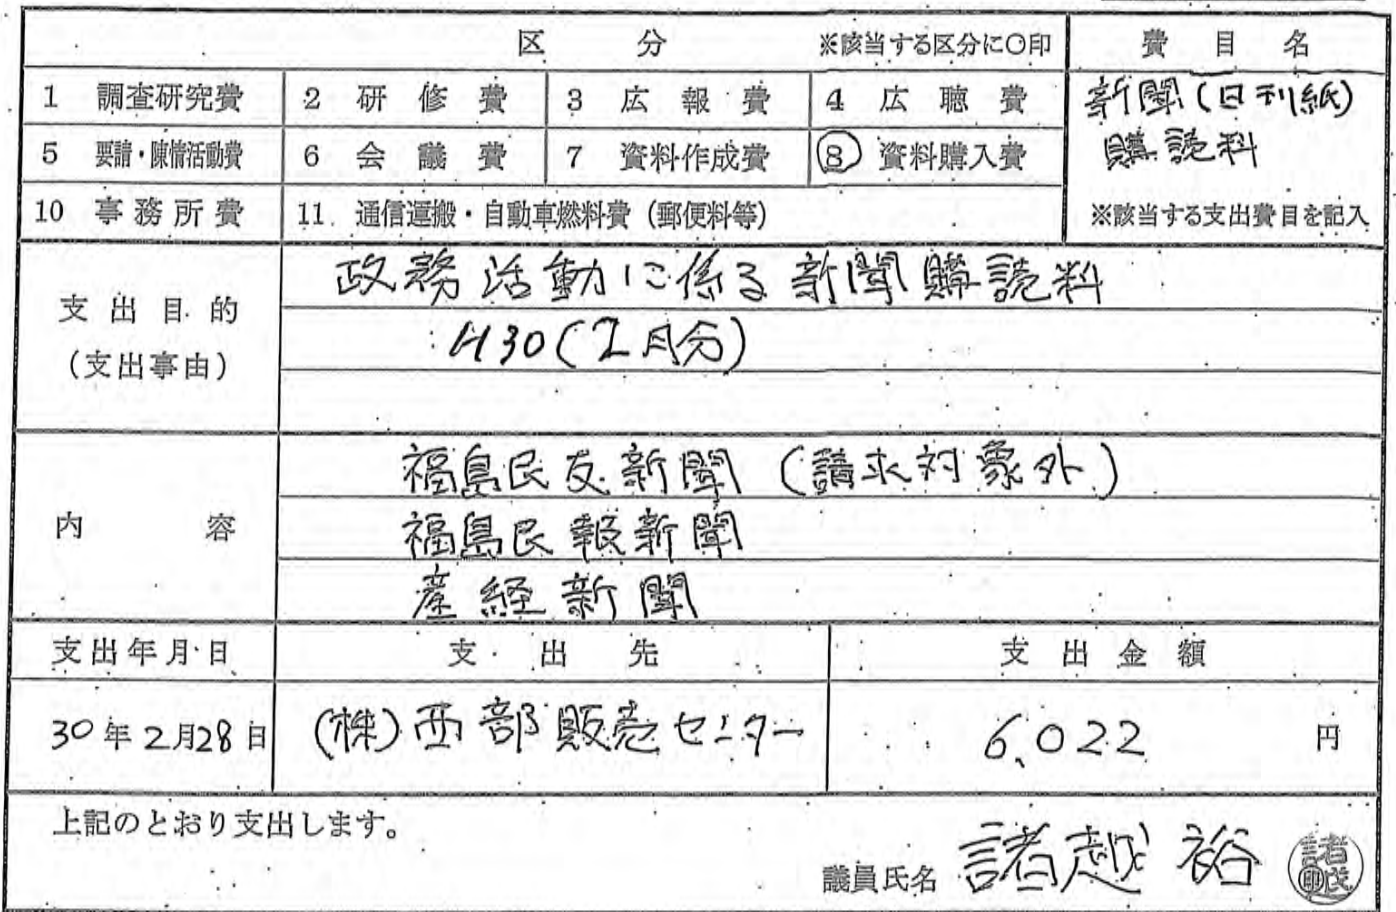 区 分 ※該当する区分に○印
費目名
1 調査研究費 2 研修費 3 広報費 4 広聴費
新聞(日刊紙)
5 要請・陳情活動費 6 会議費 7 資料作成費 8 資料購入費
購読料
10 事務所費 11 通信運搬・自動車燃料費(郵便料等)
※該当する支出費目を記入
支出目的
(支出事由)
政務活動に係る新聞購読料
H30(2月分)
内容
福島民友新聞(請求対象外)
福島民報新聞
産経新聞
支出年月日 支出先 支出金額
30年2月28日 (株)西部販売センター 6,022 円
上記のとおり支出します。
議員氏名 諸越 裕